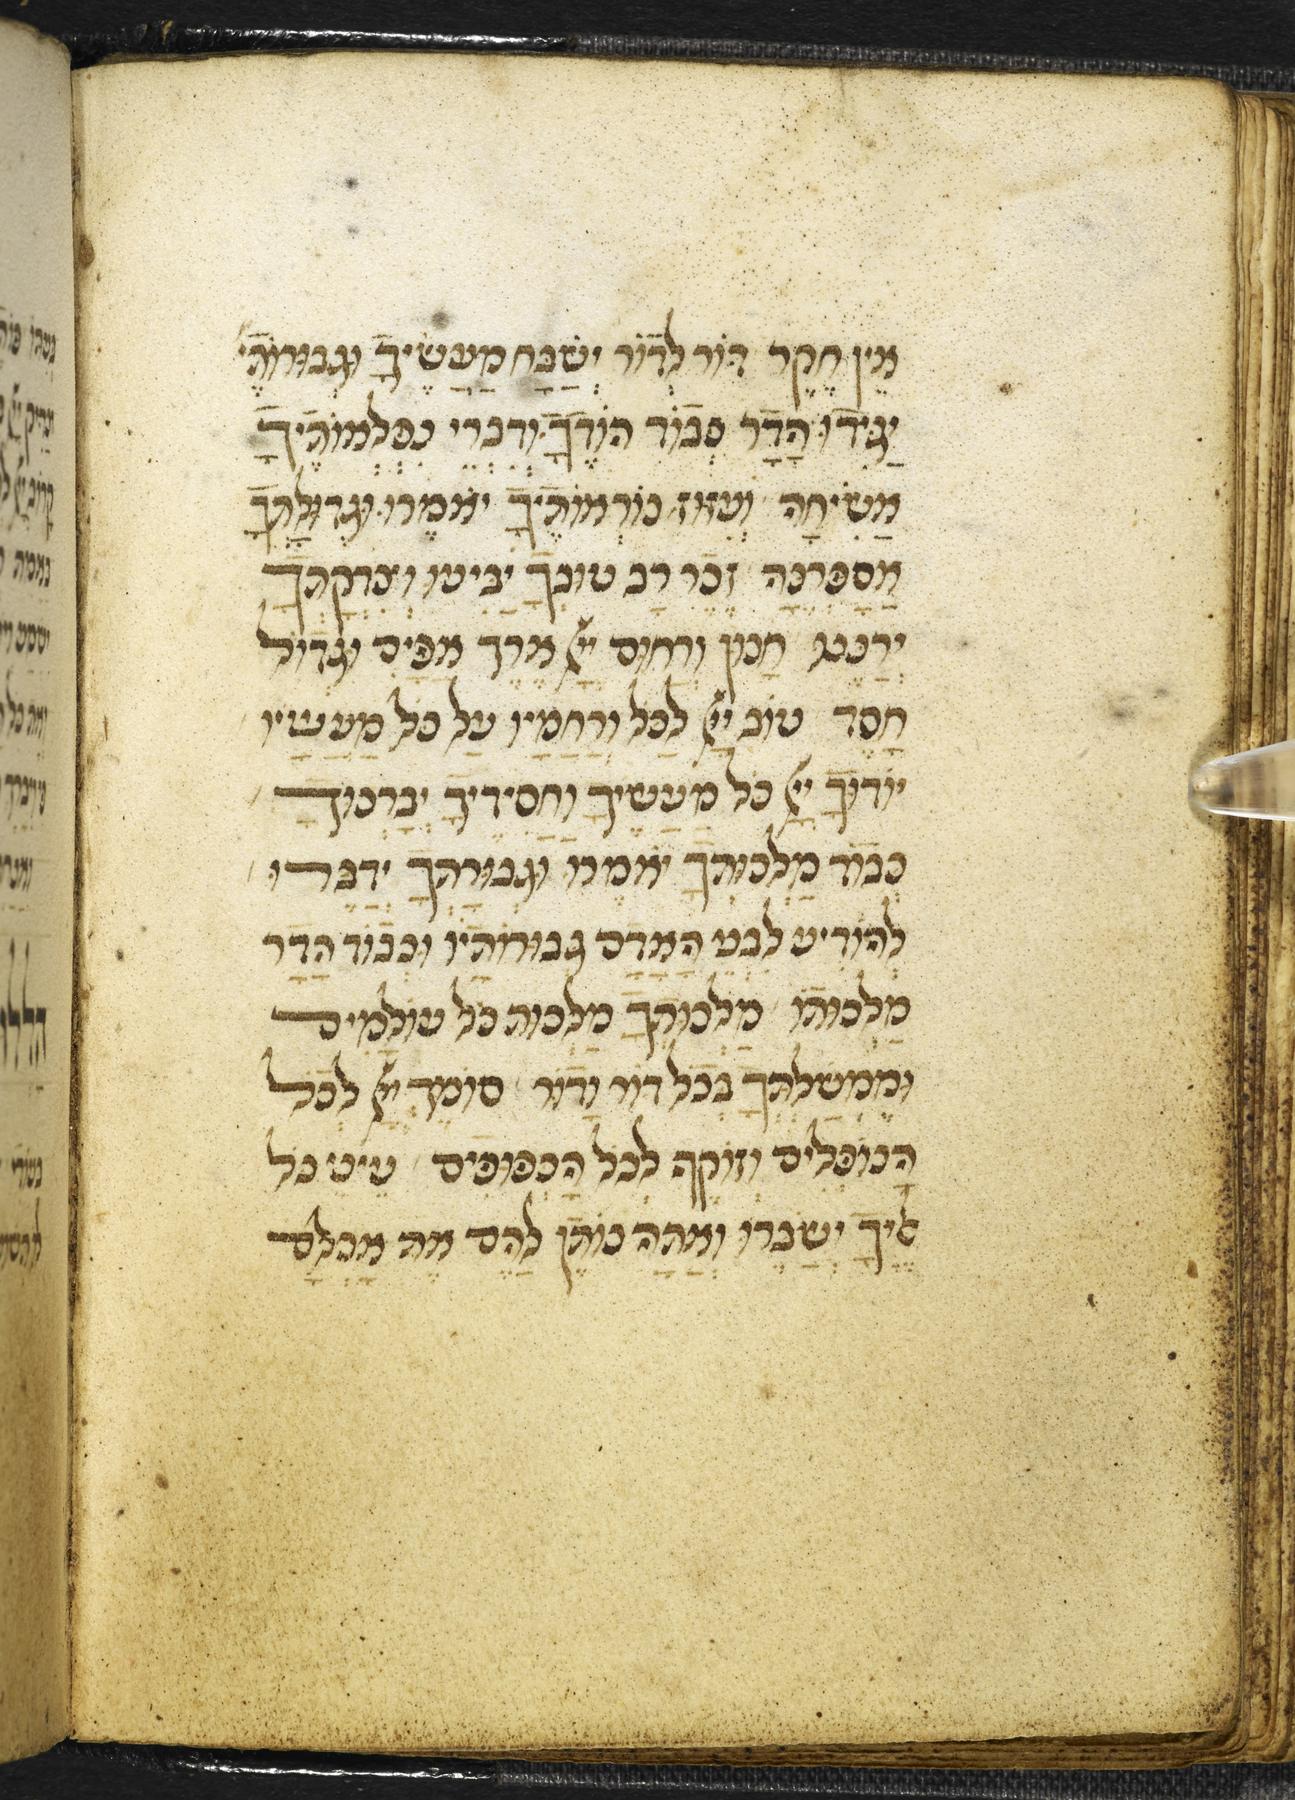 אֵין חֵקֶר דּוֹר לְדוֹר יְשַׁבַּח מַעֲשֶׂיךָ וּגְבוּרוֹתֶי
יַגִּידוּ הֲדַר כְּבוֹד הוֹדֶךָ וְדִבְרֵי נִפְלְאוֹתֶיךָ
אָשִׂיחָה וְעֱזוּז נוֹרְאוֹתֶיךָ יֹאמֵרוּ וּגְדוּלָּתְךָ
אֲסַפְּרֶנָּה זֵכֶר רַב טוּבְךָ יַבִּיעוּ וְצִדְקָתְךָ
יְרַנֵּנוּ חַנּוּן וְרַחוּם יְיָ אֶרֶךְ אַפַּיִם וּגְדוֹל
חָסֶד טוֹב יְיָ לַכֹּל וְרַחֲמָיו עַל כָּל מַעֲשָׂיו
יוֹדוּךָ יְיָ כָּל מַעֲשֶׂיךָ וַחֲסִידֶיךָ יְבָרְכוּךָ
כְּבוֹד מַלְכוּתְךָ יֹאמֵרוּ וּגְבוּרָתְךָ יְדַבֵּרוּ
לְהוֹדִיעַ לִבְנֵי הָאָדָם גְּבוּרוֹתָיו וּכְבוֹד הֲדַר
מַלְכוּתוֹ מַלְכוּתְךָ מַלְכוּת כָּל עוֹלָמִים
וּמֶמְשַׁלְתְּךָ בְּכָל דּוֹר וָדוֹר סוֹמֵךְ יְיָ לְכָל
הַנּוֹפְלִים וְזוֹקֵף לְכָל הַכְּפוּפִים עֵינֵי כֹל
אֵלֶיךָ יְשַׂבֵּרוּ וְאַתָּה נוֹתֵן לָהֶם אֶת אָכְלָם